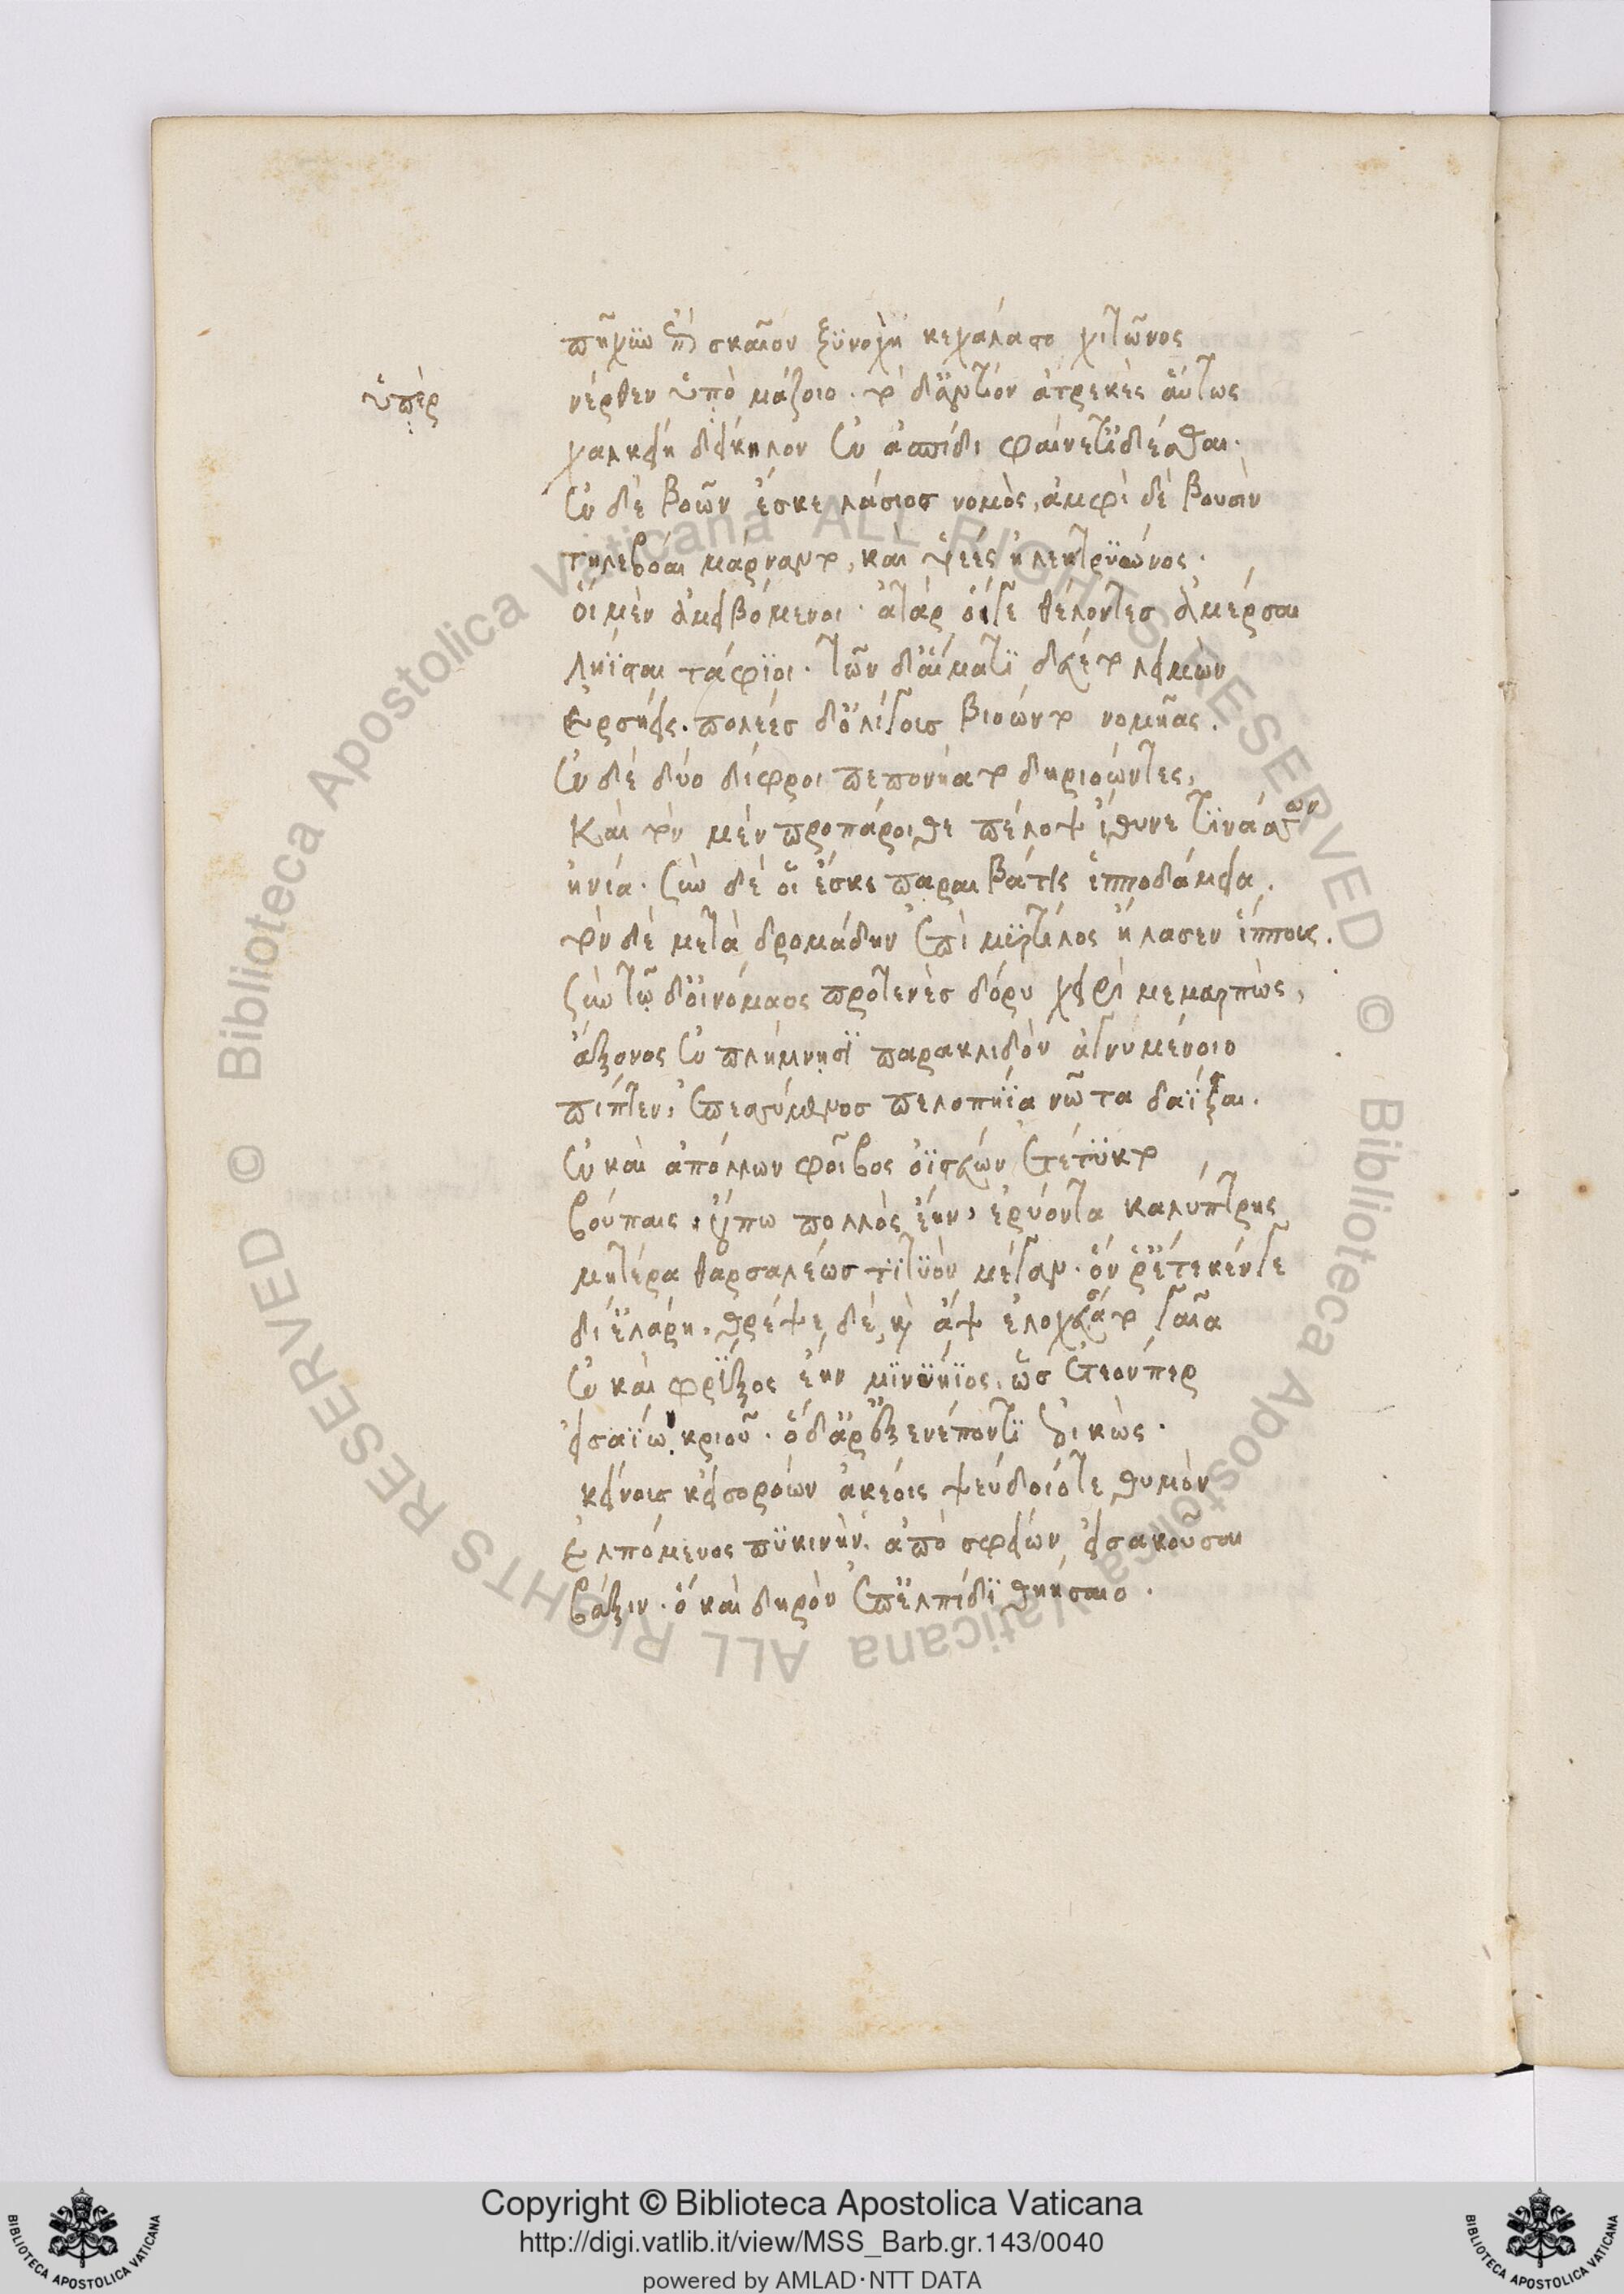 πῆχυν ἐπὶ σκαιὸν ξϋνοχὴ κεχάλαστο χιτῶνος
ὑπὲρ
νέρθεν ὑπὸ μάζοιο· τὸ δ' ἀντίον ἀτρεκὲς αὕτως
χαλκείη δείκηλον ἐν ἀσπίδι φαίνετ' ἰδέσθαι.
ἐν δὲ βοῶν ἔσκε λάσιος νομὸς, ἀμφὶ δὲ βουσὶν
τηλεβόαι μάρναντο, καὶ υἱέες ἠλεκτρϋώνος·
οἱ μὲν ἀμειβόμενοι· ἀτὰρ οἵγε θέλοντες ἀμέρσαι
ληϊσταὶ τάφϊοι· τῶν δ' αἵματϊ δεύετο λειμὼν
ἑρσήεις. πολέες δ' ὀλίγοις βιόωντο νομῆας.
ἐν δὲ δύο δίφροι πεπονήατο δηριόωντες,
Καὶ τὸν μὲν προπάροιθε πέλοψ ἴθυνε τϊνάσσων
ἡνία· ζὺν δέ οἱ ἔσκε παραιβάτις ἱπποδάμεια.
τὸν δὲ μετὰ δρομάδην ἐπὶ μϋρτίλος ἤλασεν ἵππους.
ζὺν τῷ δ' οἰνόμαος προτενὲς δόρυ χειρὶ μεμαρπὼς,
ἄξονος ἐν πλήμνησϊ παρακλιδὸν ἀγνυμένοιο
πίπτεν, ἐπεσσύμενος πελοπήϊα νῶτα δαΐξαι.
ἐν καὶ ἀπόλλων φοῖβος ὀϊστεύων ἐτέτϋκτο
βούπαις, οὔπω πολλὸς ἔην, ἐρύοντα καλύπτρης
μητέρα θαρσαλέως τϊτϋὸν μέγαν· ὅν ῥ' ἔτεκέν γε
δί' ἐλάρη. θρέψε δὲ, κὴ ἂψ ἐλοχεύσατο γαῖα
ἐν καὶ φρίξος ἔην μϊνϋήϊος, ὡς ἐτεόν περ
εἰσαΐων κριοῦ· ὁ δ' ἄρ' ἐξενέποντϊ ἐοικώς·
κείνους κ' εἰσορόων ἀκέοις ψεύδοιό τε θυμὸν
ἐλπόμενος πϋκινὴν ἀπὸ σφείων εἰσακοῦσαι
βάξιν· ὃ καὶ δηρὸν ἐπ' ἐλπίδϊ θηήσαιο.